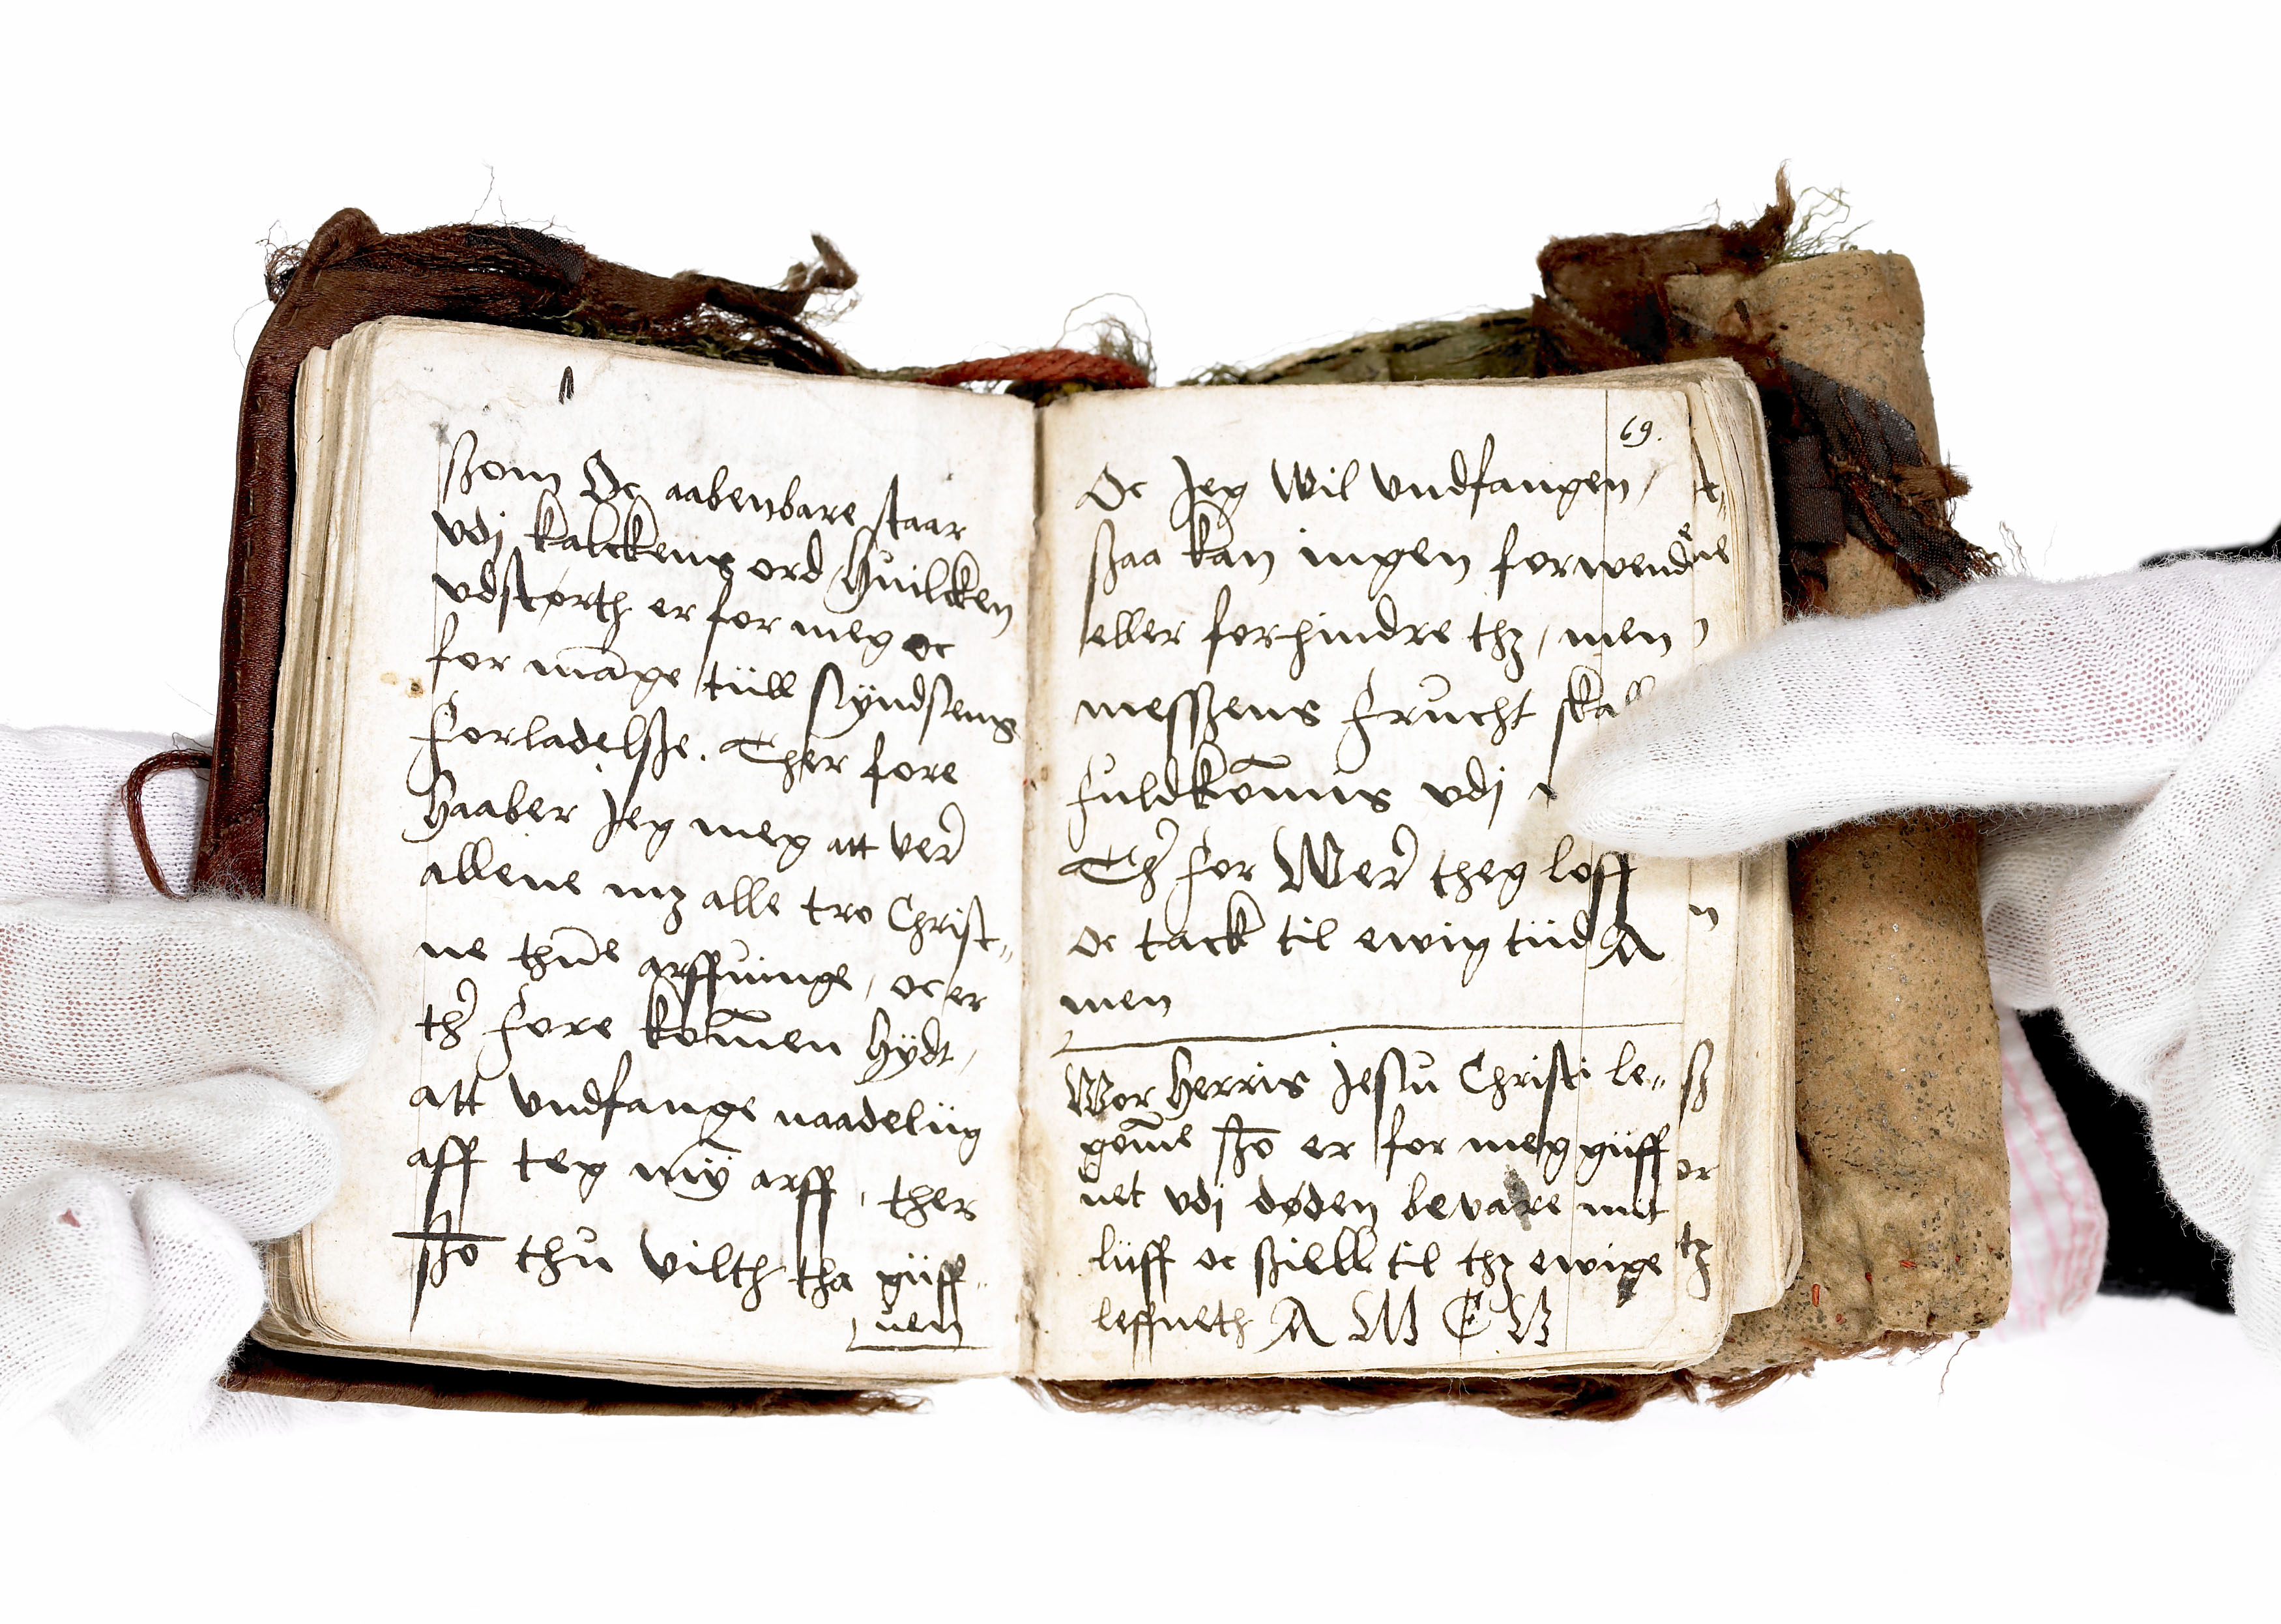 szom Oc aabenbare staar
vdj kalckens ord Huilcken
vdstørth er for meg oc
for māge tüll syndsens
Forladelsze. Ther fore
Haaber Jeg meg att ver̉
allene mꝫ alle tro Christ⸗
ne thīe arffuinge, oc er
th̉ Fore kom̄en Hÿdt,
att vndfange naadeliig
aff teg mȳ arff, ther
szō thu vilth tha giiff⸗
uen
69.
Oc Jeg Wil vndfangen,
szaa kan ingen forwende
eller forhindre thꝫ, men
messzens Frucht
Fuldkōmis vdj
Th̉ for Wer̉ theg loff
oc tack til ewig tiid A
men
Wor Herris Jesu Christi le⸗
gom̄e szō er for meg giiff
uet vdj døden bevare mit
liiff oc sziell til thꝫ ewige
leffneth A M E N